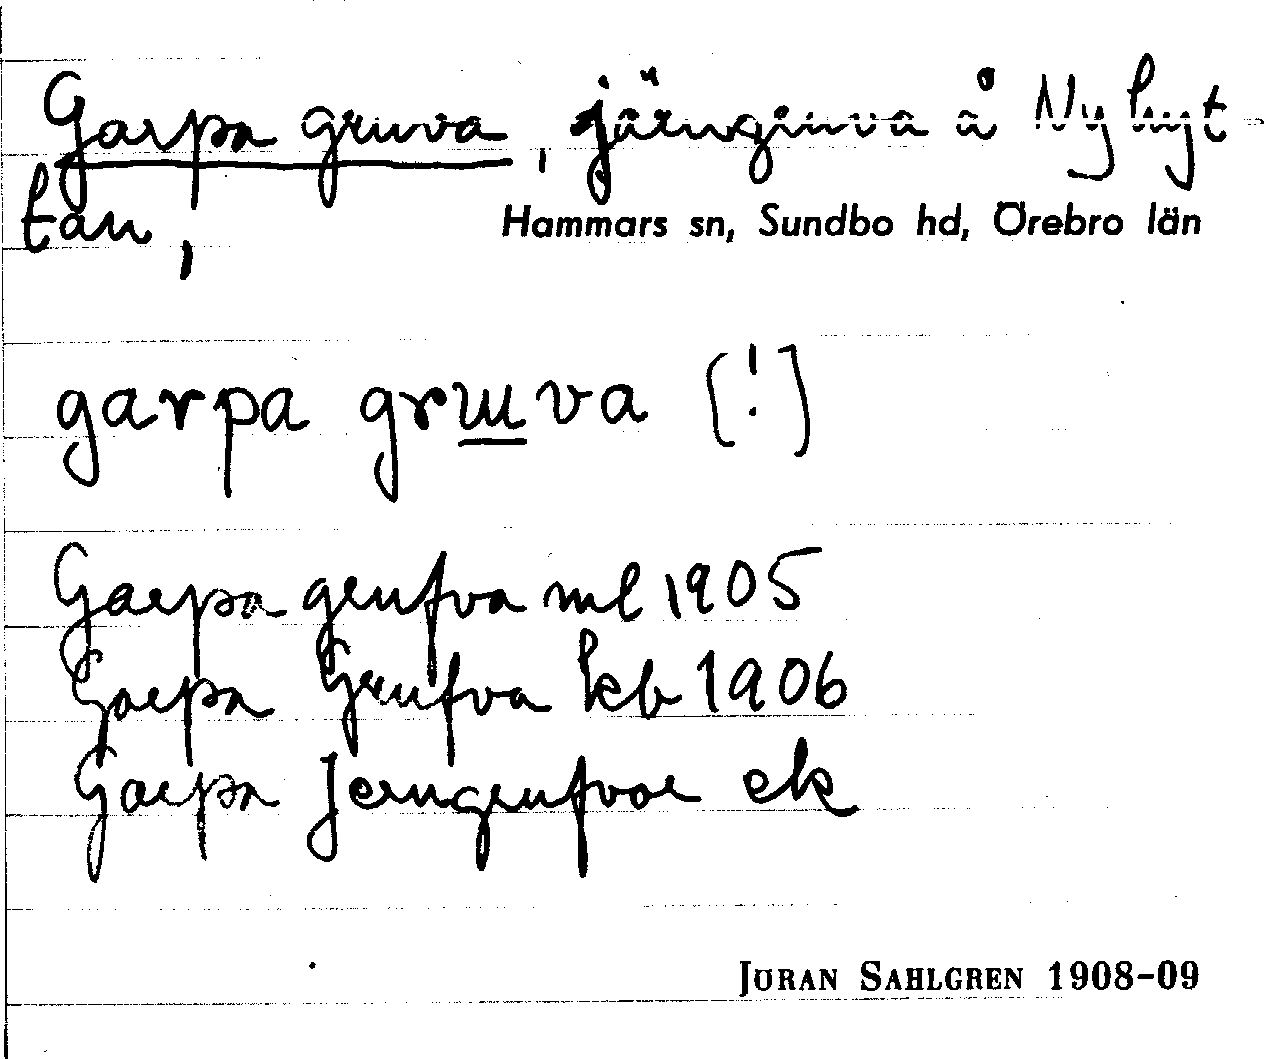 Garpa gruva, järngruva å Nyhyt-
tan,
Hammars sn, Sundbo hd, Örebro län
garpa grɯva [!]
Garpa grufva ml 1905
Garpa Grufva kb 1906
Garpa Jerngrufvor ek
JÖRAN SAHLGREN 1908-09